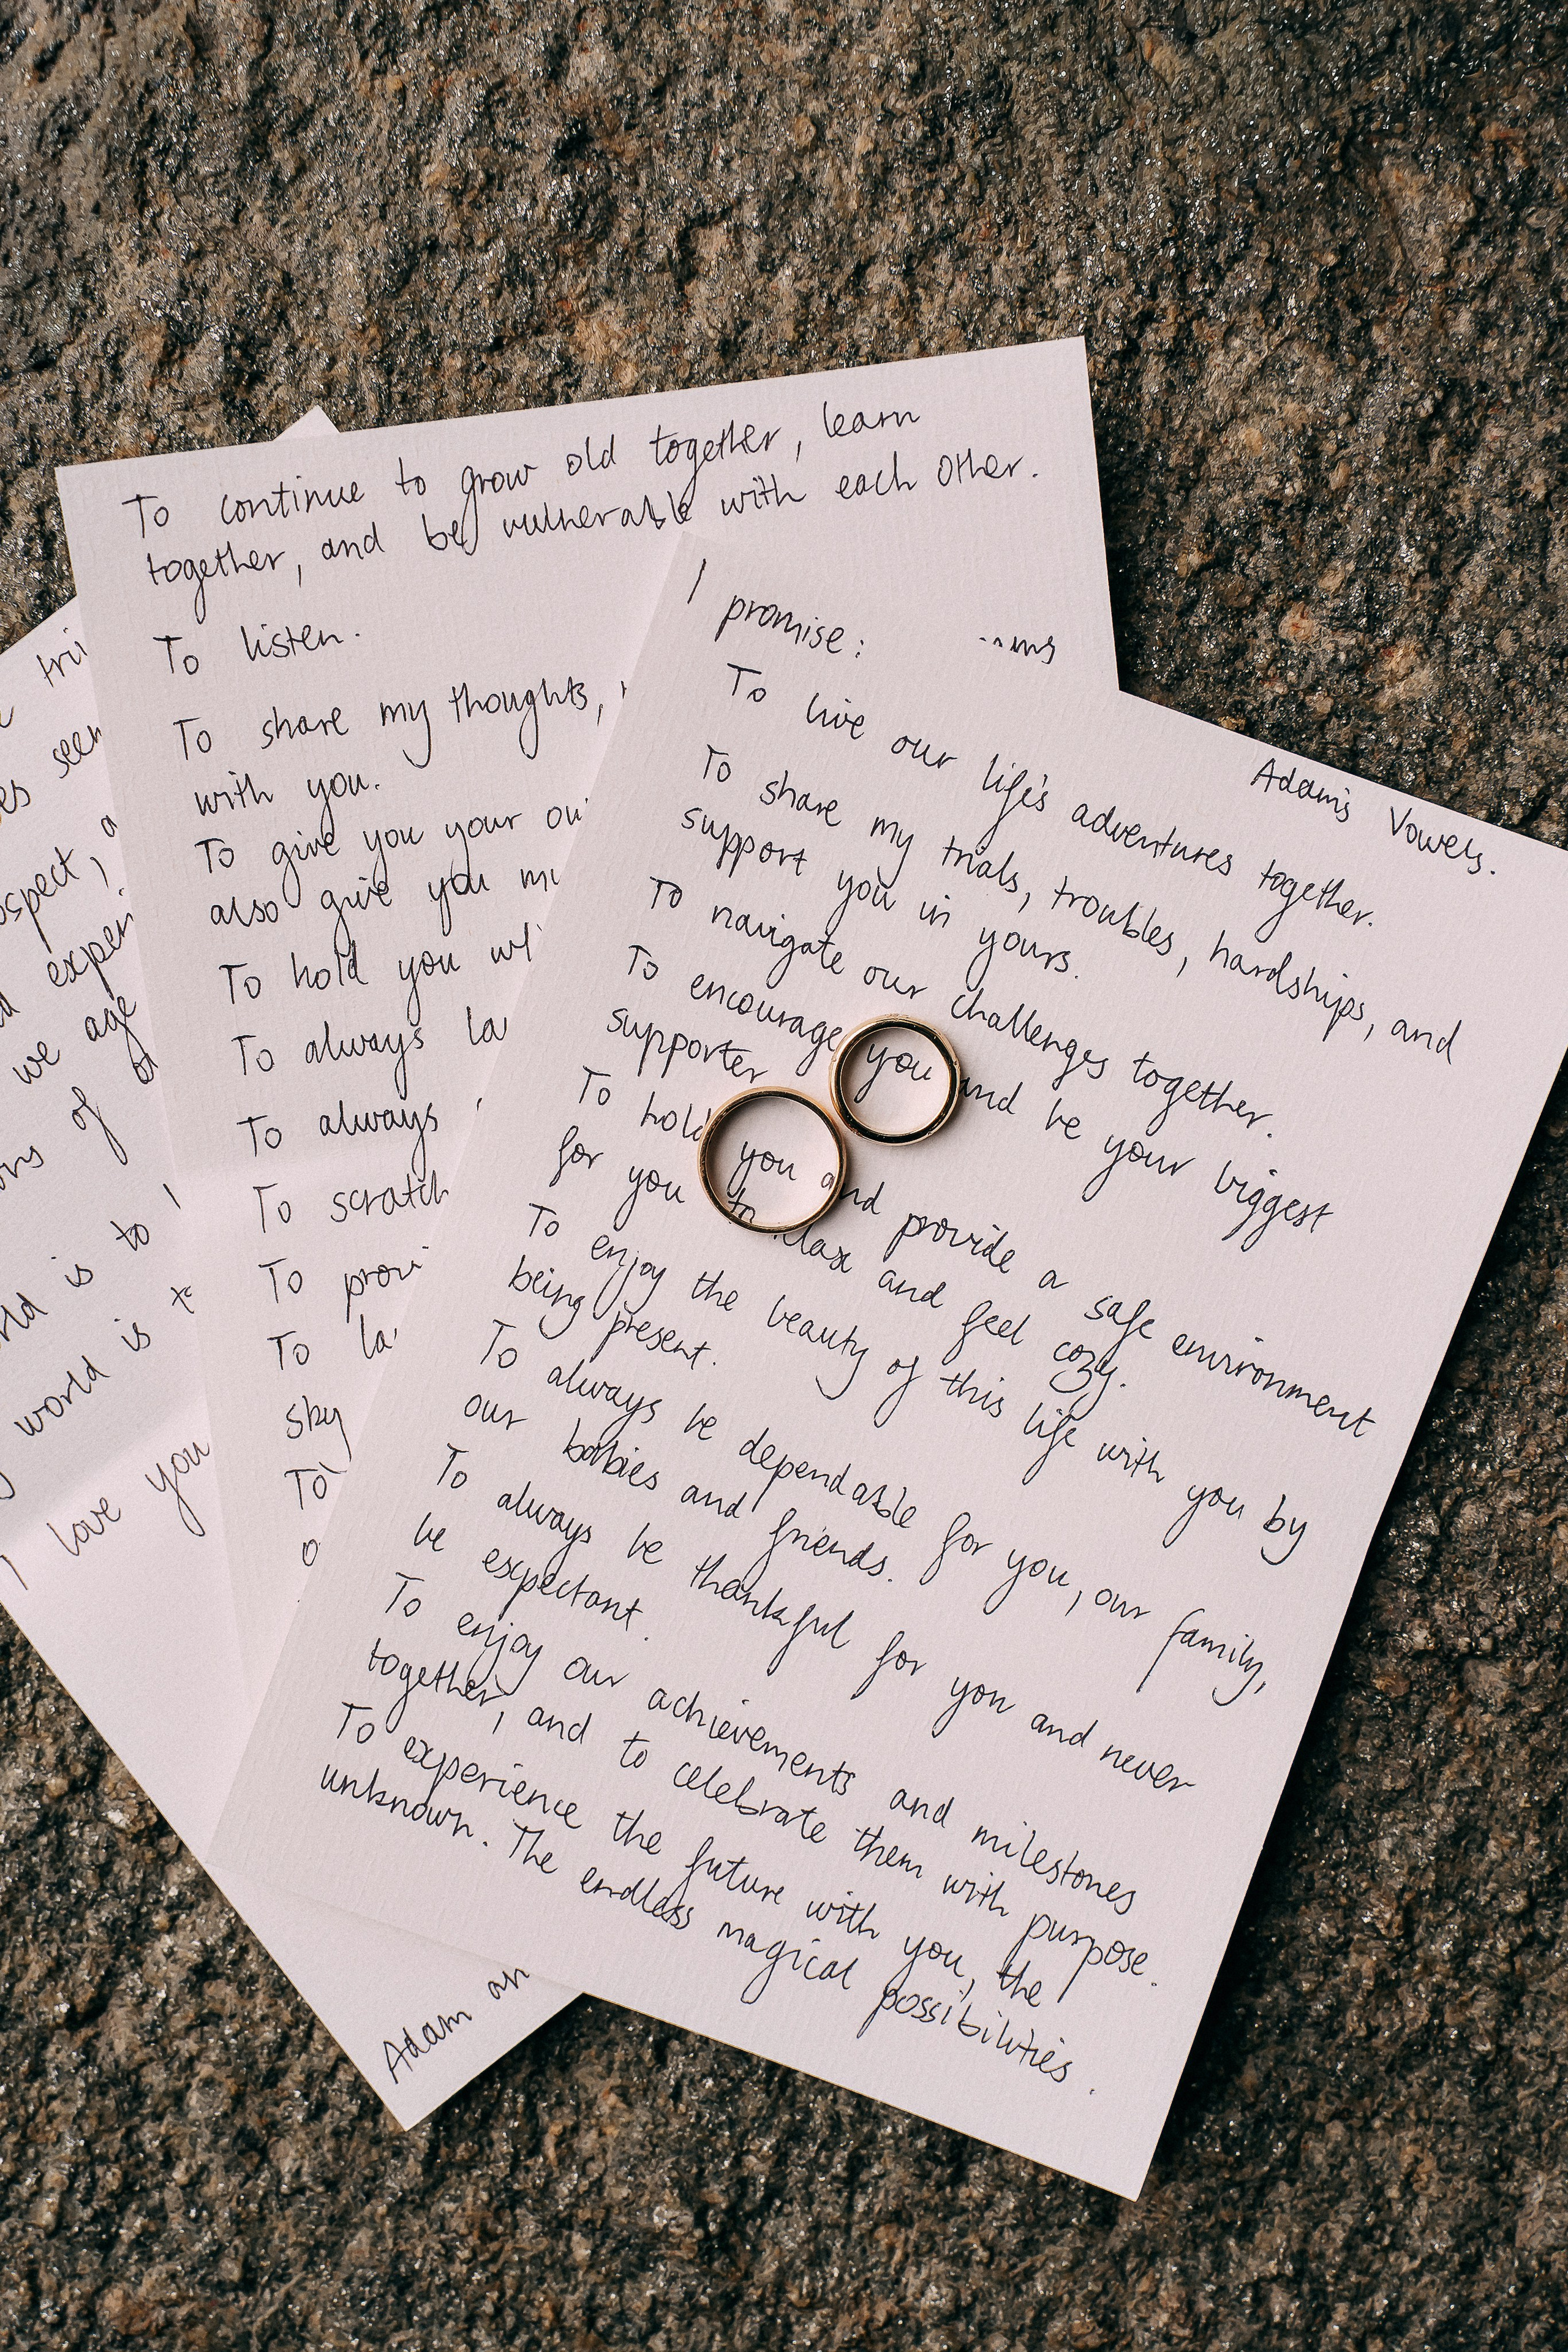 Adam's Vowels.
I promise:
To live our life's adventures together.
To share my trials, troubles, hardships, and
support you in yours.
To navigate our challenges together.
To encourage you and be your biggest
supporter
To hold you and provide a safe environment
for you to relax and feel cozy.
To enjoy the beauty of this life with you by
being present.
To always be dependable for you, our family,
our babies and friends.
To always be thankful for you and never
be expectant.
To enjoy our achievements and milestones
together, and to celebrate them with purpose.
To experience the future with you, the
unknown. The endless magical possibilities.
To continue to grow old together, learn
together, and be vulnerable with each other.
To listen.
To share my thoughts,
with you.
To give you your
also give you
To hold you
To always
To always
To scratch
To
To
sky
To
seen
we age
of
is to
world is
I love you
Adam